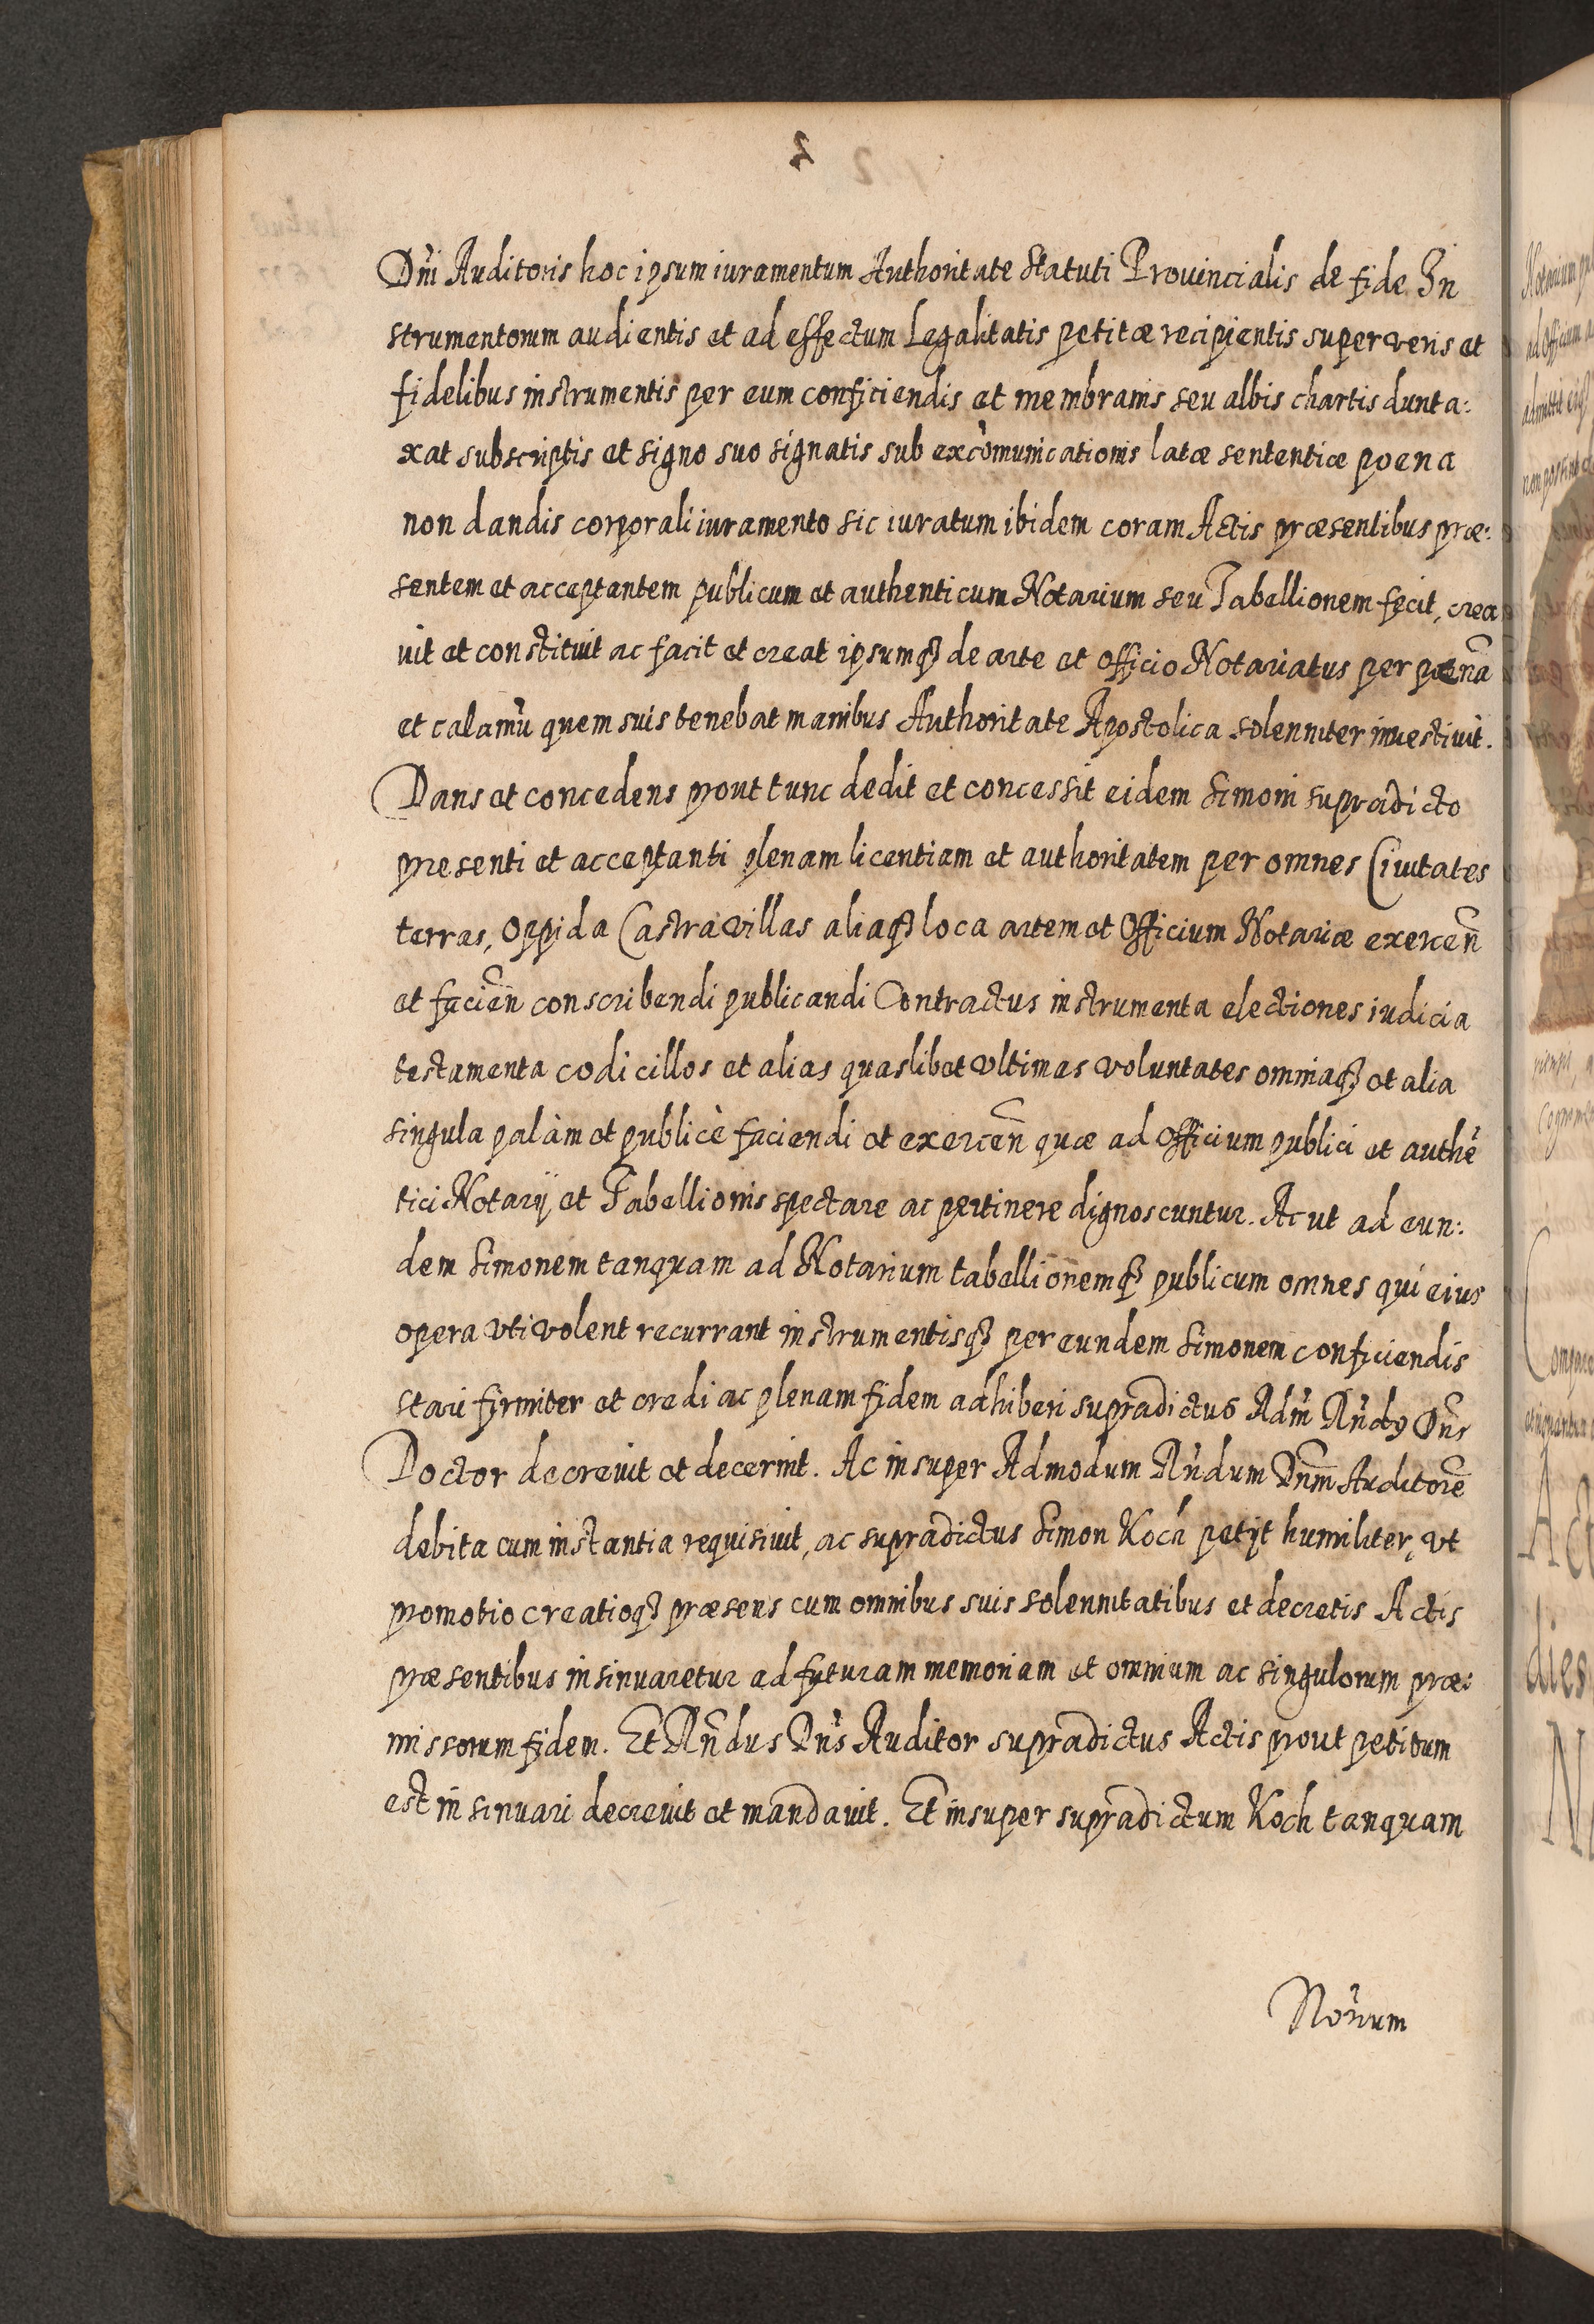 2
Dn̄i Auditoris hoc ipsum iuramentum Authoritate Statuti Prouincialis de fide In
strumentorum audientis et ad effectum Legalitatis petitæ recipientis super veris et
fidelibus instrumentis per eum conficiendis et membranis seu albis chartis dunta:
xat subscriptis et signo suo signatis sub excom̄unicationis latæ sententiæ poena
non dandis corporali iuramento sic iuratum ibidem coram Actis præsentibus præ:
sentem et acceptantem publicum et authenticum Notarium seu Tabellionem fecit, crea
uit et constituit ac facit et creat ipsumq̃ de arte et officio Notariatus per pennā
et calamū quem suis tenebat manibus Authoritate Apostolica solenniter inuestiuit.
Dans et concedens prout tunc dedit et concessit eidem Simoni supradicto
presenti et acceptanti plenam licentiam et authoritatem per omnes Ciuitates
terras, Oppida Castra villas aliaq̃ loca artem et Officium Notariæ exercen̄
et facien̄ conscribendi publicandi Contractus instrumenta electiones iudicia
testamenta codicillos et alias quaslibet vltimas voluntates omniaq̃ et alia
singula palàm et publicè faciendi et exercen̄ quæ ad Officium publici et authē
tici Notarij et Tabellionis spectare ac pertinere dignoscuntur. Ac ut ad eun:
dem Simonem tanquam ad Notarium tabellionemq̃ publicum omnes qui eius
opera vti volent recurrant instrumentisq̃ per eundem Simonem conficiendis
stari firmiter et credi ac plenam fidem adhiberi supradictus Adm̄ Rn̄dus Dn̄s
Doctor decreuit et decernit. Ac insuper Admodum Rn̄dum Dn̄m Auditorē
debita cum instantia requisiuit, ac supradictus Simon Koch petijt humiliter, vt
promotio creatioq̃ præsens cum omnibus suis solennitatibus et decretis Actis
præsentibus insinuaretur ad futuram memoriam et omnium ac singulorum præ:
missorum fidem. Et Rn̄dus Dn̄s Auditor supradictus Actis prout petitum
est insinuari decreuit et mandauit. Et insuper supradictum Koch tanquam
Norium